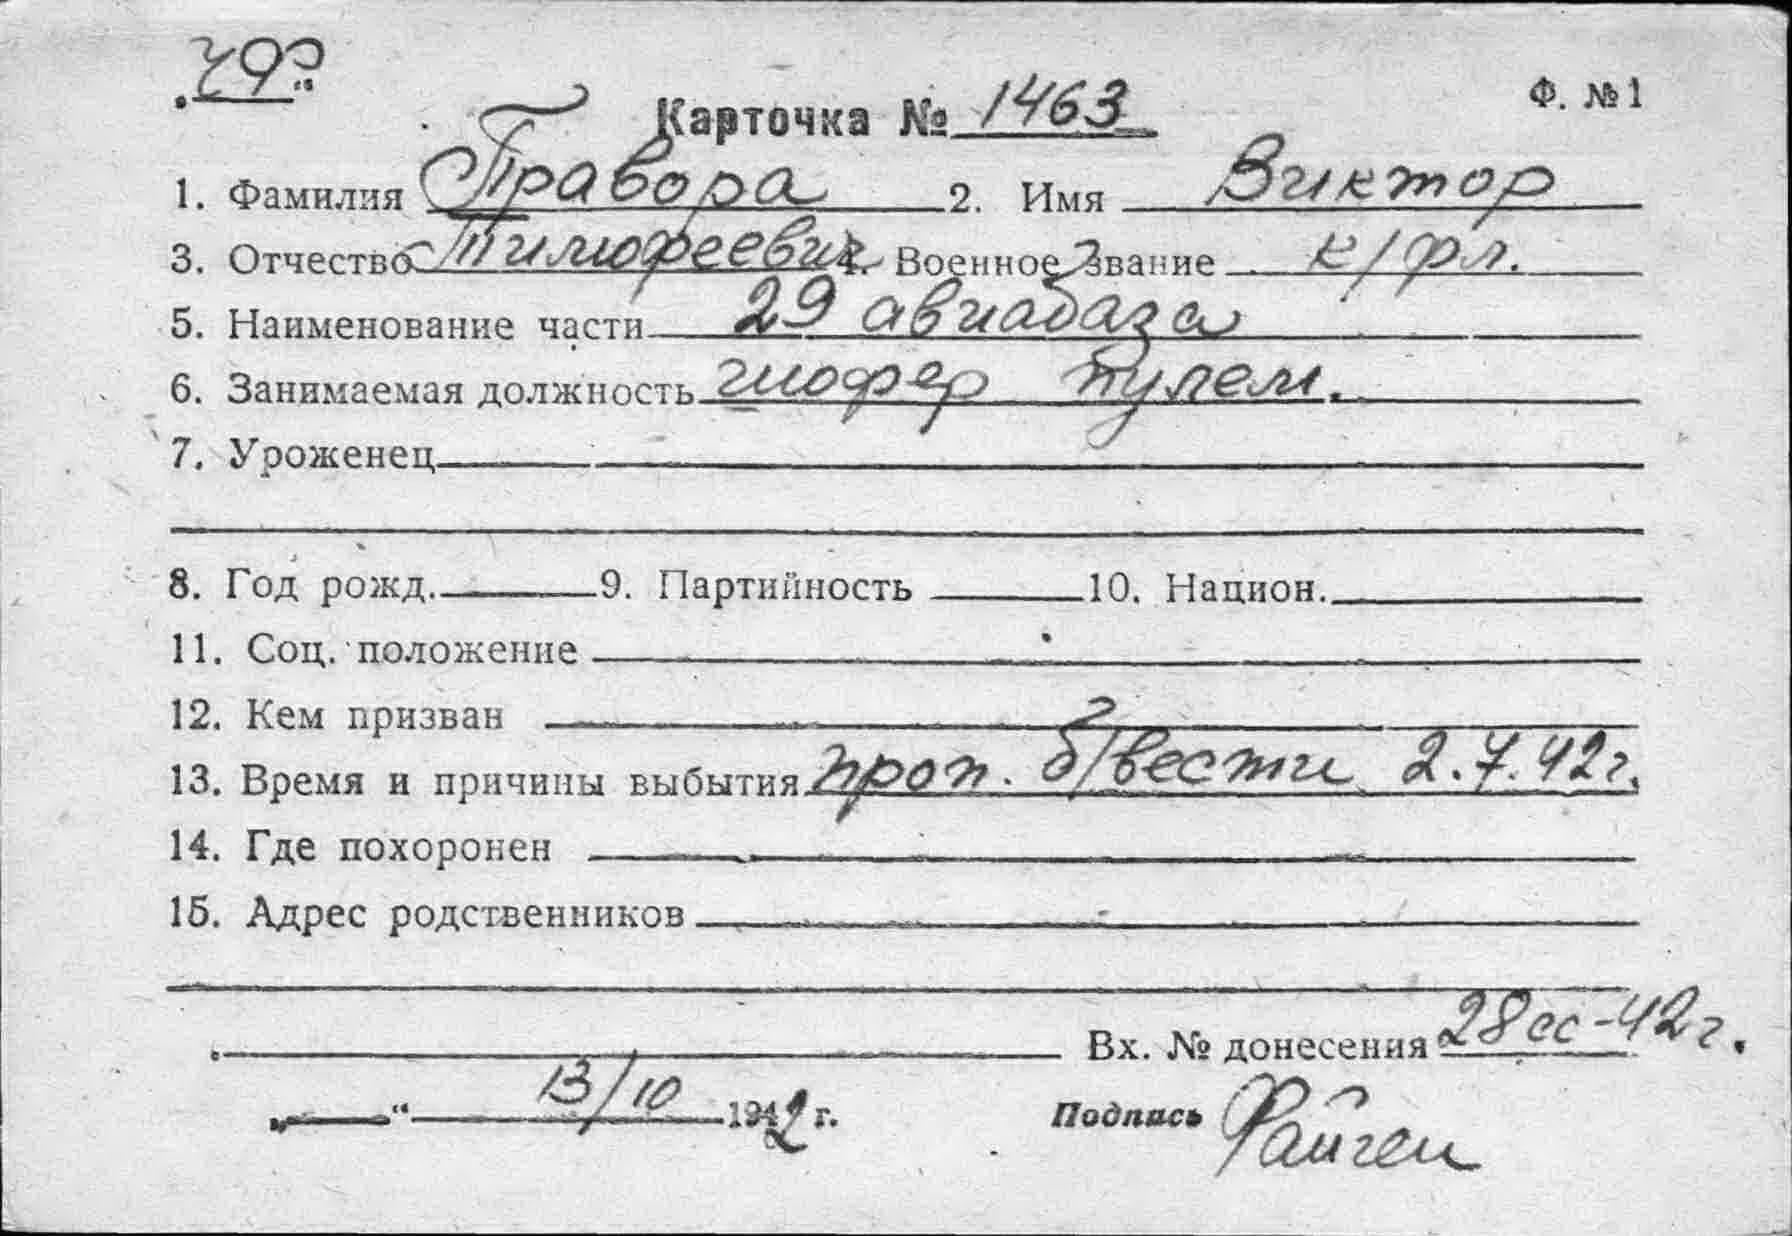 Карточка № 1463
Ф. № 1
1. Фамилия Правора 2. Имя Виктор
3. Отчество Тимофеевич 4. Военное звание к/фл.
5. Наименование части 29 авиабаза
6. Занимаемая должность шофер пулем.
7. Уроженец
8. Год рожд. 9. Партийность 10. Национ.
11. Соц. положение
12. Кем призван
13. Время и причины выбытия проп. б/вести 2.7.42г.
14. Где похоронен
15. Адрес родственников
Вх. № донесения 28сс-42г.
„ “ 13/10 1942 г. Подпись